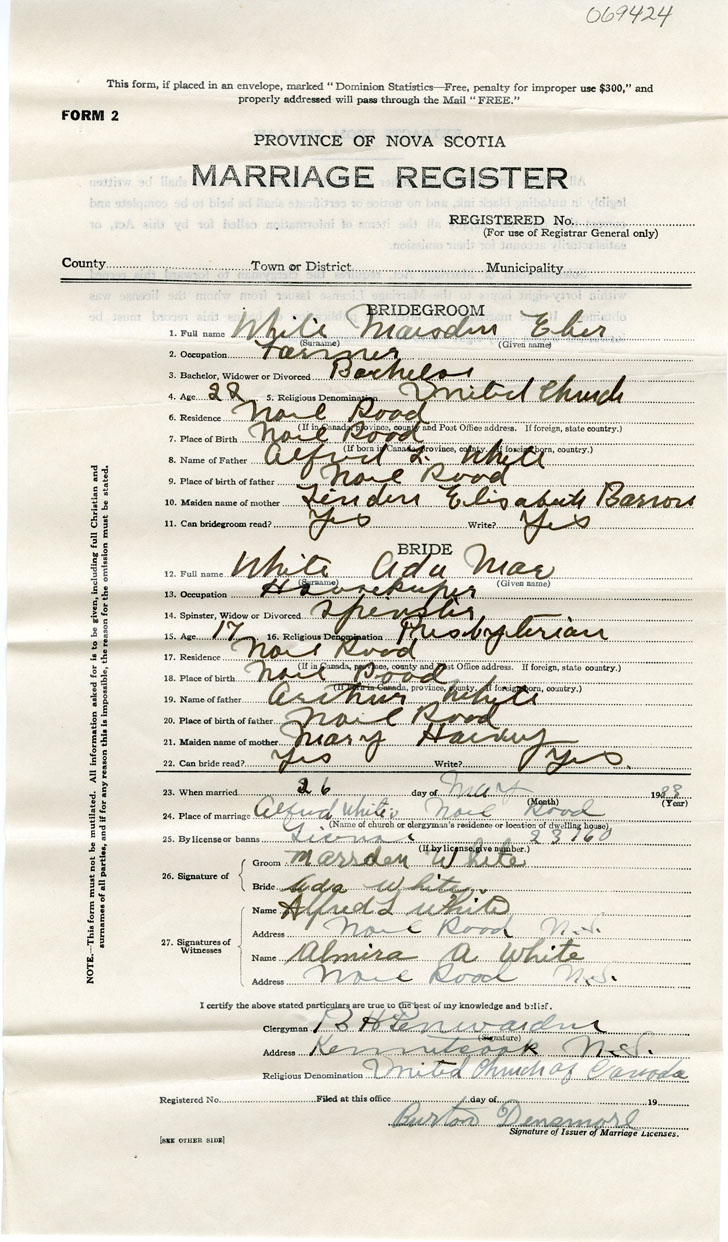 069424
This form, if placed in an envelope, marked “Dominion Statistics—Free, penalty for improper use $300,” and
properly addressed will pass through the Mail “FREE.”
FORM 2
PROVINCE OF NOVA SCOTIA
MARRIAGE REGISTER
REGISTERED No.
(For use of Registrar General only)
County Town or District Municipality
BRIDEGROOM
1. Full name White Marsden Eber
(Surname) (Given name)
2. Occupation Farmer
3. Bachelor, Widower or Divorced Bachelor
4. Age 28 5. Religious Denomination United Church
6. Residence Noel Road
(If in Canada, province, county and Post Office address. If foreign, state country.)
7. Place of Birth Noel Road
(If born in Canada, province, county. If foreign born, country.)
8. Name of Father Alfred L. White
9. Place of birth of father Noel Road
10. Maiden name of mother Elisabeth Barron
11. Can bridegroom read? Yes Write? Yes
BRIDE
12. Full name White Ada Mae
(Surname) (Given name)
13. Occupation Housekeeper
14. Spinster, Widow or Divorced Spinster
15. Age 17 16. Religious Denomination Presbyterian
17. Residence Noel Road
(If in Canada, province, county and Post Office address. If foreign, state country.)
18. Place of birth Noel Road
(If born in Canada, province, county. If foreign born, country.)
19. Name of father Arthur White
20. Place of birth of father Noel Road
21. Maiden name of mother Mary Harvey
22. Can bride read? Yes Write? Yes.
23. When married 26 day of May 1938
(Month) (Year)
24. Place of marriage Alfred White's Noel Road
(Name of church or clergyman's residence or location of dwelling house)
25. By license or banns License 23160
(If by license, give number.)
26. Signature of
Groom Marsden White
Bride Ada White
27. Signatures of Witnesses
Name Alfred L White
Address Noel Road N.S.
Name Almira A White
Address Noel Road N.S.
I certify the above stated particulars are true to the best of my knowledge and belief.
Clergyman B H Penwarden
(Signature)
Address Kennetcook N.S.
Religious Denomination United Church of Canada
Registered No. Filed at this office day of 19
Burton Densmore
Signature of Issuer of Marriage Licenses.
[SEE OTHER SIDE]
NOTE.—This form must not be mutilated. All information asked for is to be given, including full Christian and
surnames of all parties, and if for any reason this is impossible, the reason for the omission must be stated.